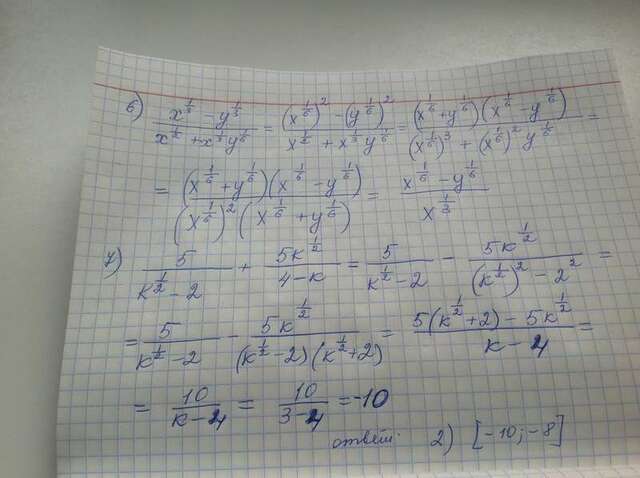 6) \frac{x^{\frac{1}{3}} - y^{\frac{1}{3}}}{x^{\frac{1}{2}} + x^{\frac{1}{3}} y^{\frac{1}{6}}} = \frac{(x^{\frac{1}{6}})^2 - (y^{\frac{1}{6}})^2}{x^{\frac{1}{2}} + x^{\frac{1}{3}} y^{\frac{1}{6}}} = \frac{(x^{\frac{1}{6}} + y^{\frac{1}{6}})(x^{\frac{1}{6}} - y^{\frac{1}{6}})}{(x^{\frac{1}{6}})^3 + (x^{\frac{1}{6}})^2 y^{\frac{1}{6}}} =
= \frac{(x^{\frac{1}{6}} + y^{\frac{1}{6}})(x^{\frac{1}{6}} - y^{\frac{1}{6}})}{(x^{\frac{1}{6}})^2 (x^{\frac{1}{6}} + y^{\frac{1}{6}})} = \frac{x^{\frac{1}{6}} - y^{\frac{1}{6}}}{x^{\frac{1}{3}}}
7) \frac{5}{к^{\frac{1}{2}} - 2} + \frac{5к^{\frac{1}{2}}}{4 - к} = \frac{5}{к^{\frac{1}{2}} - 2} - \frac{5к^{\frac{1}{2}}}{(к^{\frac{1}{2}})^2 - 2^2} =
= \frac{5}{к^{\frac{1}{2}} - 2} - \frac{5к^{\frac{1}{2}}}{(к^{\frac{1}{2}} - 2)(к^{\frac{1}{2}} + 2)} = \frac{5(к^{\frac{1}{2}} + 2) - 5к^{\frac{1}{2}}}{к - 4} =
= \frac{10}{к - 4} = \frac{10}{3 - 4} = -10
ответ: 2) [-10; -8]